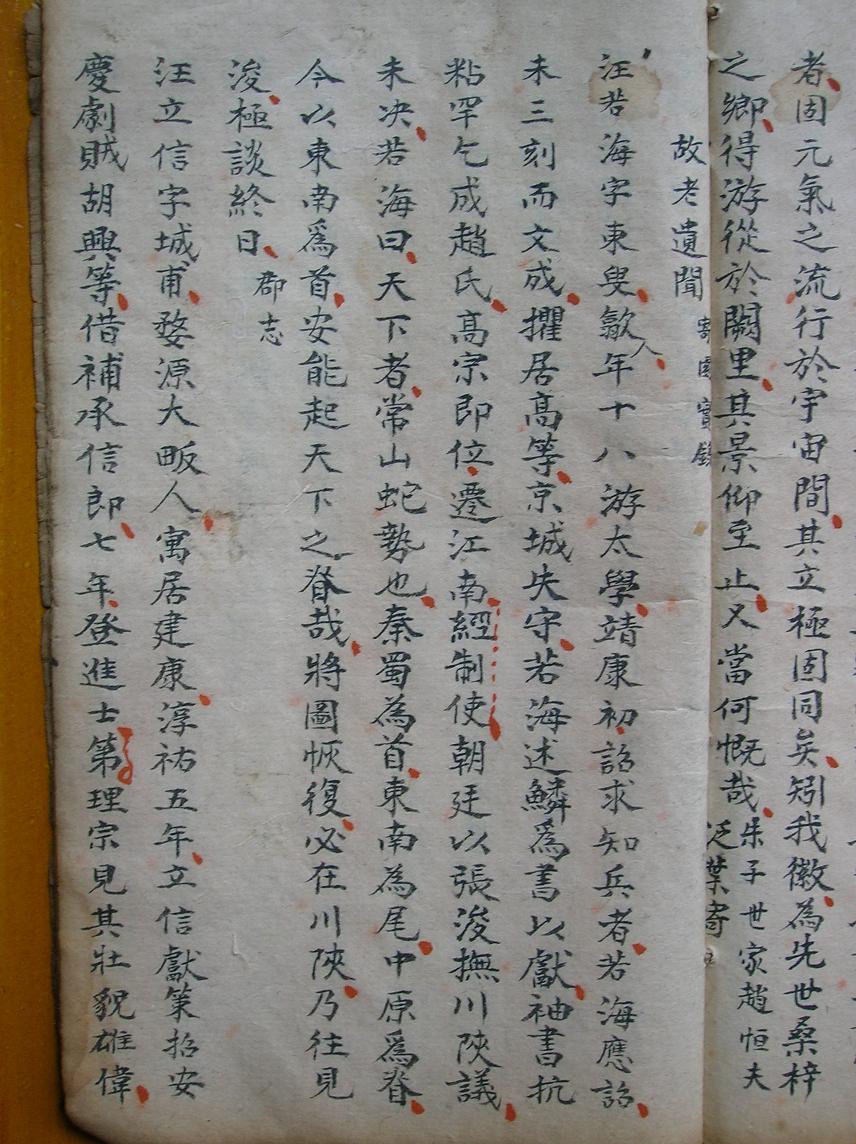 者固元氣之流行於宇宙間其立極固同矣矧我徽為先世桑梓
之鄉得游從於闕里其景仰至止又當何慨哉朱子世家趙恒夫
泛葉寄
故老遺聞
寄園
汪若海字東叟歙人年十八游太學靖康初詔求知兵者若海應詔
未三刻而文成擢居高等京城失守若海述鱗為書以獻袖書抗
粘罕乞成趙氏高宗即位遷江南經制使朝廷以張浚撫川陝議
未决若海曰天下者常山蛇勢也秦蜀為首東南為尾中原為脊
今以東南為首安能起天下之脊哉將圖恢復必在川陝乃往見
浚極談終日郡志
汪立信字城甫婺源大畈人寓居建康淳祐五年立信獻策招安
慶劇賊胡興等借補承信郎七年登進士第理宗見其壯貌雄偉